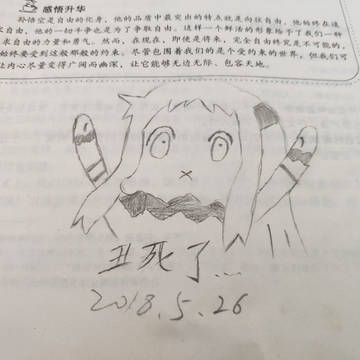 感悟升华
孙悟空是自由的化身，他的品质中最突出的特点就是向往自由，他的终
自由，他的一切斗争也是为了争取自由。这样一个鲜活的形象给予了我们一种
求自由的力量和勇气。然而，在现在，即使是将来，完全自由终究是不可能的，
始终要受到这般那般的约束。尽管包围着我们的是个受约束的世界，但我们可
让内心尽量变得广阔而幽深，让它能够无边无际、包容天地。
丑死了...
2018.5.26